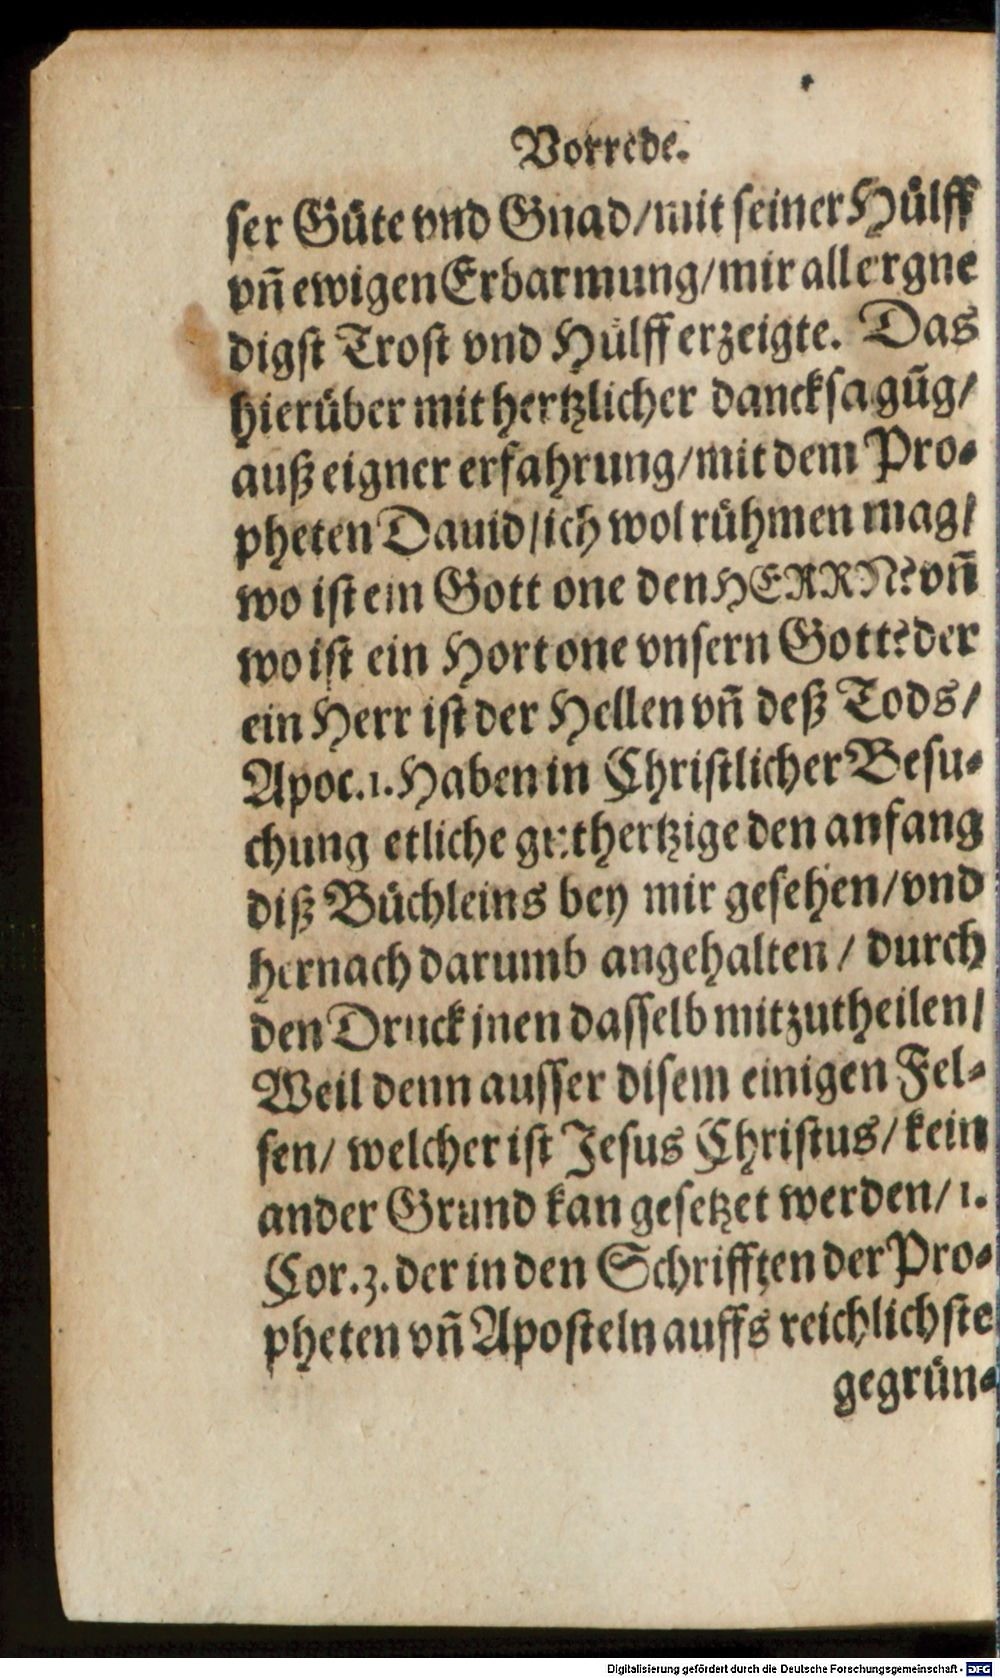 Vorrede.
ser Güte vnd Gnad/mit seiner Hülff
vñ ewigen Erbarmung/mir allergne
digst Trost vnd Hülff erzeigte. Das
hierüber mit hertzlicher dancksagũg/
auß eigner erfahrung/mit dem Pro-
pheten Dauid/ich wol rühmen mag/
wo ist ein Gott one den HERRN? vñ
wo ist ein Hort one vnsern Gott? der
ein Herr ist der Hellen vñ deß Tods/
Apoc.1. Haben in Christlicher Besu-
chung etliche guthertzige den anfang
diß Büchleins bey mir gesehen/vnd
hernach darumb angehalten/ durch
den Druck jnen dasselb mitzutheilen/
Weil denn ausser disem einigen Fel-
sen/ welcher ist Jesus Christus/ kein
ander Grund kan gesetzet werden/ 1.
Cor.3. der in den Schrifften der Pro-
pheten vñ Aposteln auffs reichlichste
gegrün-
Digitalisierung gefördert durch die Deutsche Forschungsgemeinschaft - DFG